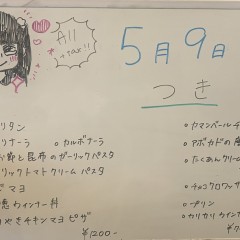 All
+tax!!
5月9日
つき
リタン
リナーラ
○カルボナーラ
と昆布のガーリックパスタ
リックトマトクリームパスタ
マヨ
ウィンナー料
やきチキンマヨピザ
¥1200-
○カマンベールチ
○アボカドの
○たくあんクリーム
○チョコクロワッサ
○プリン
○カリカリウインナ